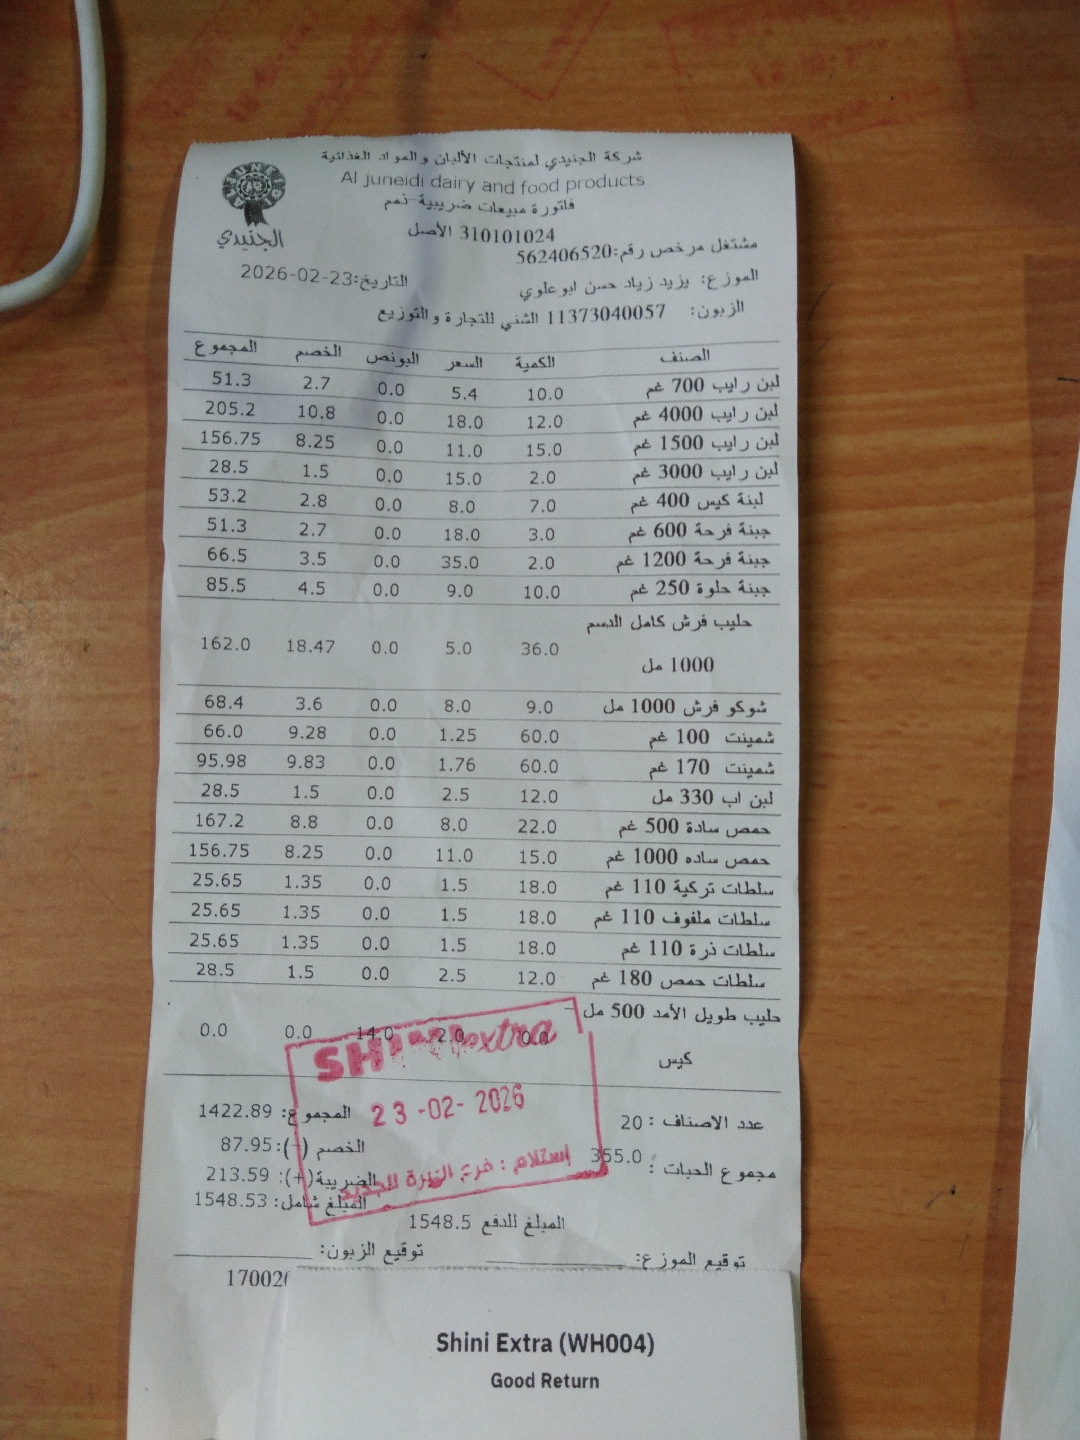 شركة الجنيدي لمنتجات الألبان والمواد الغذائية
Al juneidi dairy and food products
فاتورة مبيعات ضريبية-نمم
310101024 الأصل
الجنيدي
مشتغل مرخص رقم:562406520
التاريخ:2026-02-23
الموزع: يزيد زياد حسن ابوعلوي
الزبون: 11373040057 الشني للتجارة والتوزيع
الصنف الكمية السعر البونص الخصم المجموع
لبن رايب 700 غم 10.0 5.4 0.0 2.7 51.3
لبن رايب 4000 غم 12.0 18.0 0.0 10.8 205.2
لبن رايب 1500 غم 15.0 11.0 0.0 8.25 156.75
لبن رايب 3000 غم 2.0 15.0 0.0 1.5 28.5
لبنة كيس 400 غم 7.0 8.0 0.0 2.8 53.2
جبنة فرحة 600 غم 3.0 18.0 0.0 2.7 51.3
جبنة فرحة 1200 غم 2.0 35.0 0.0 3.5 66.5
جبنة حلوة 250 غم 10.0 9.0 0.0 4.5 85.5
حليب فرش كامل الدسم
1000 مل 36.0 5.0 0.0 18.47 162.0
شوكو فرش 1000 مل 9.0 8.0 0.0 3.6 68.4
شمينت 100 غم 60.0 1.25 0.0 9.28 66.0
شمينت 170 غم 60.0 1.76 0.0 9.83 95.98
لبن اب 330 مل 12.0 2.5 0.0 1.5 28.5
حمص سادة 500 غم 22.0 8.0 0.0 8.8 167.2
حمص ساده 1000 غم 15.0 11.0 0.0 8.25 156.75
سلطات تركية 110 غم 18.0 1.5 0.0 1.35 25.65
سلطات ملفوف 110 غم 18.0 1.5 0.0 1.35 25.65
سلطات ذرة 110 غم 18.0 1.5 0.0 1.35 25.65
سلطات حمص 180 غم 12.0 2.5 0.0 1.5 28.5
حليب طويل الأمد 500 مل -
كيس 0.0 2.0 14.0 0.0 0.0
SHINI extra
23-02-2026
إستلام : فرع
عدد الاصناف : 20
المجموع: 1422.89
الخصم (-): 87.95
مجموع الحبات : 355.0
الضريبة(+): 213.59
المبلغ شامل: 1548.53
المبلغ للدفع 1548.5
توقيع الموزع: توقيع الزبون:
17002
Shini Extra (WH004)
Good Return